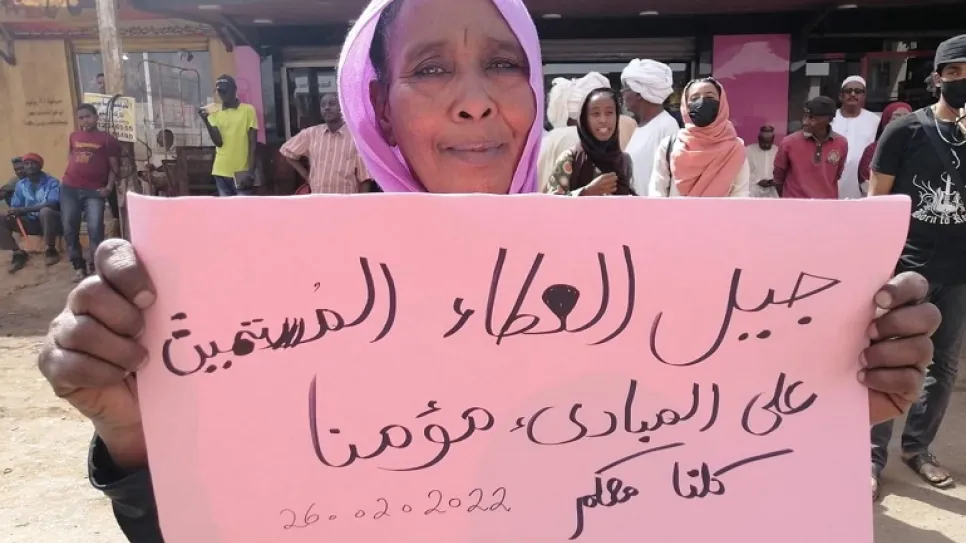 جيل العطاء المُستميت
على المبادىء مؤمنا
كلنا معكم
26.02.2022
Born to